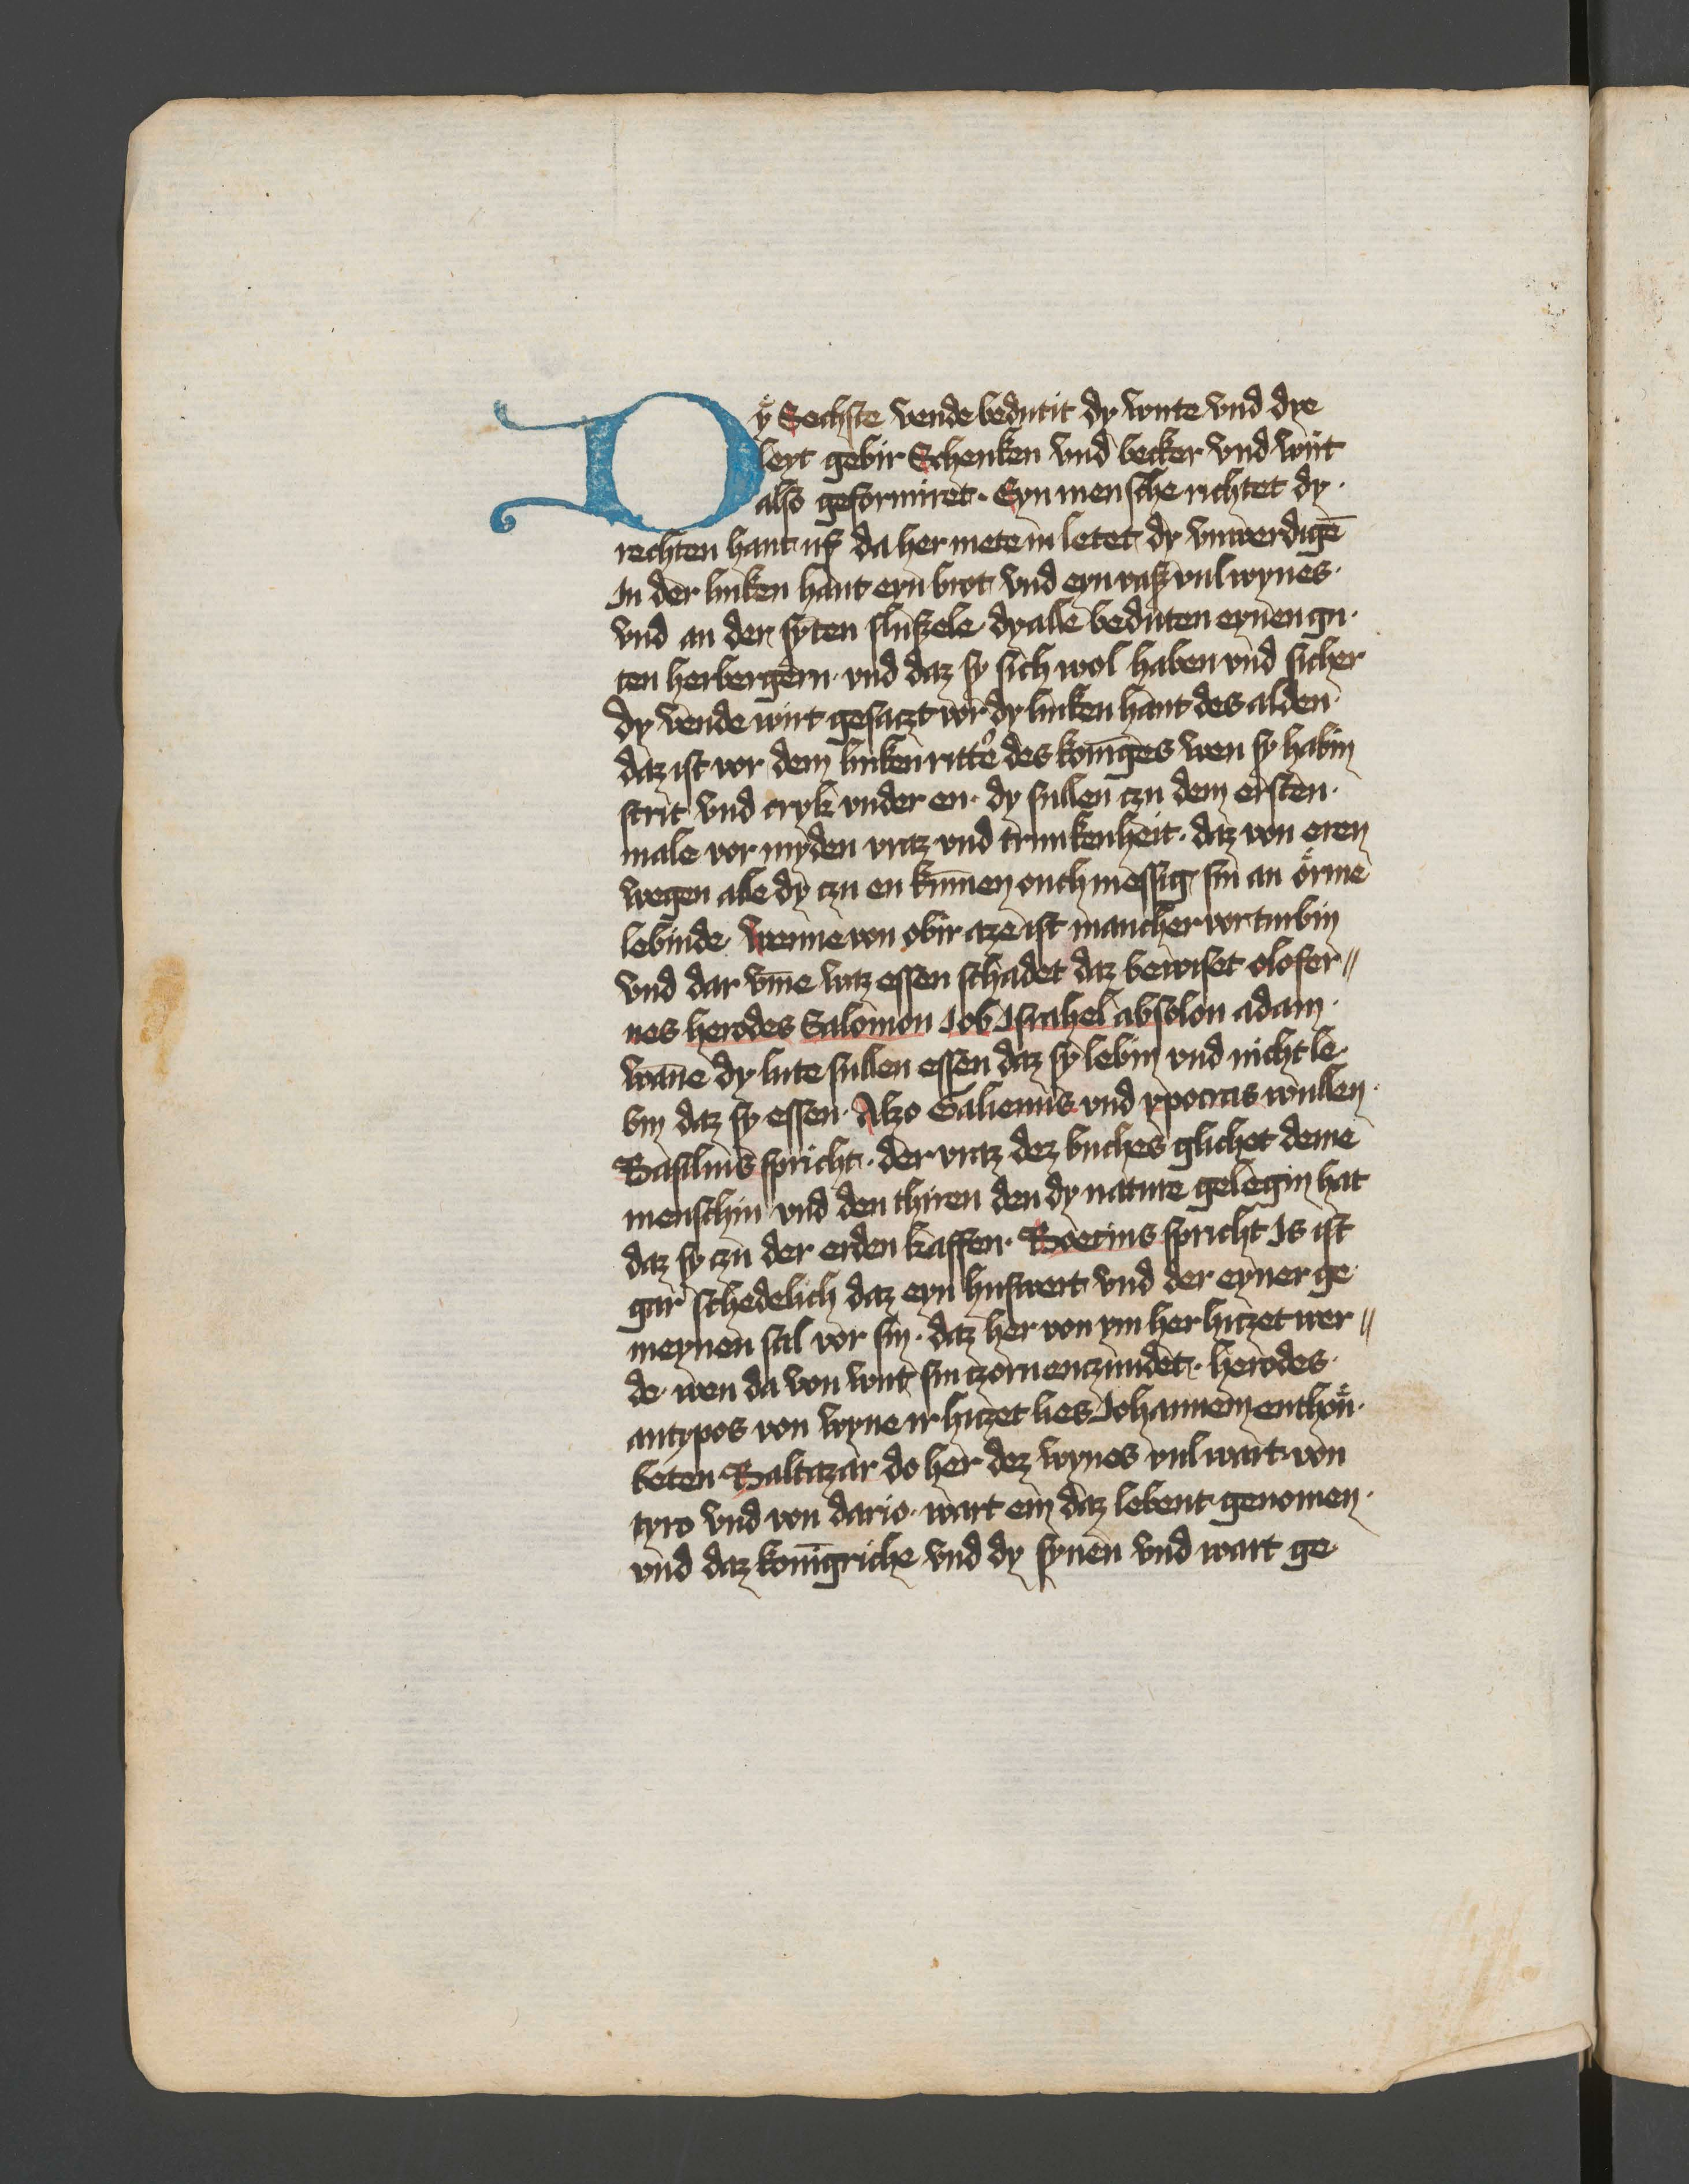 Dÿ Sechste vende bedutit dy wirte vnd dye
leyt gebir Schenken vnd becker vnd wirt
also geformiret. Eyn mensche richtet dy.
rechten hant uf da her mete in letet dy vnwerdigē
In der linken hant eyn brot vnd eyn vaß vul wynes.
vnd an der syten slussele dy alle beduten eynen gu.
ten herbergern. vnd daz sy sich wol haben vnd sicher
dy vende wirt gesaczt vor dy linken hant des alden.
daz ist vor dem linken ritter des koniges wen sy habin
strit vnd cryk vnder en. dy sullen czu dem ersten.
male vor myden vraz vnd trunkenheit. daz von eren
wegen alle dy czu en kūmen ouch messig sin an örme
lebinde. wenne von obir aze ist mancher vorturbin
vnd dar vm̄e waz essen schadet daz bewiset olofer〃
nes herodes Salomon Job Israhel absolon adam.
wan̄e dy lute sullen essen daz sy lebin vnd nicht le.
bin daz sy essen. Alzo Galienus vnd ypocras wullen.
Basilius spricht. der vraz dez buches glichet deme
menschin vnd den thiren den dy nature gelegin hat
daz sy czu der erden kaffen. Boecius spricht Is ist
gar schedelich daz eyn huswert vnd der eyner ge
meynen sal vor sin. daz her von ym her hiczet wer〃
de. wen da von wirt sin czorn enczundet. herodes.
antypos von wyne ir hiczet lies Johannem enthöu.
beten. Baltazar do her dez wynes vul wart. von
cyro vnd von dario. wart em daz lebent genomen.
vnd daz konīgriche vnd dy synen vnd wart ge